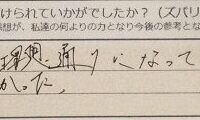 けられていかがでしたか？（ズバリ
想が、私達の何よりの力となり今後の参考とな
理想通りになって
かった。